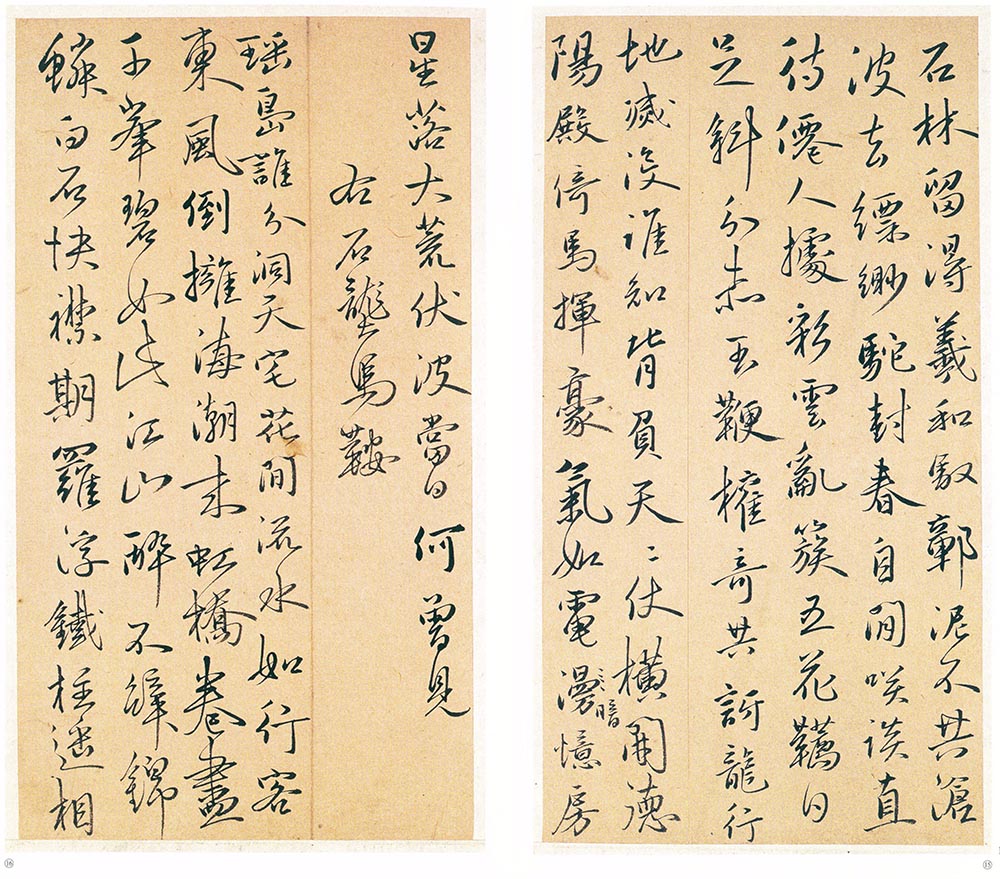 石林留得羲和馭鄣泥不共滄
波去縹緲駝封春自閒笑談直
待僊人據彩雲亂簇五花韉日
足斜分赤玉鞭權奇共訝龍行
地滅没誰知背負天〻仗橫開德
陽殿倚馬揮豪氣如電漫〻暗憶房
⑮
星落大荒伏波當日何曾見
右石壟馬鞍
瑶島誰分洞天宅花間流水如行客
東風倒擁海潮來虹橋卷盡
千峯碧如此江山醉不辭錦
鱗白石快襟期羅浮鐵柱遥相
⑯